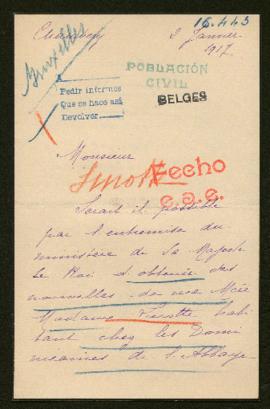 16.443
2 Janvier
1917
Bruxelles
POBLACIÓN
CIVIL
BELGES
Pedir informes
Que se hace así
Devolver
Monsieur
Fecho
Serait il possible
par l'entremise du
ministère de Sa Majesté
Le Roi d'obtenir des
nouvelles de ma Mère
Madame habi
tant chez les Domi
nicaines de l'Abbaye